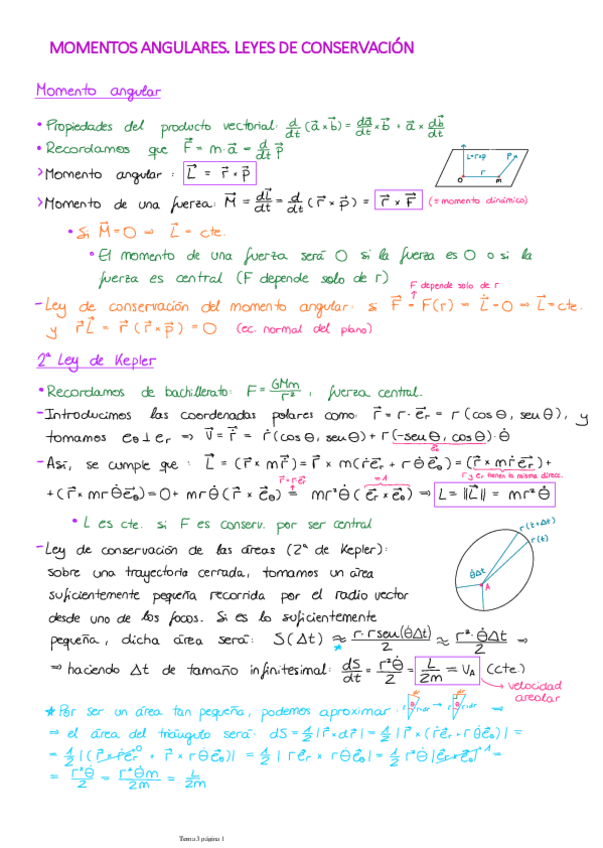 MOMENTOS ANGULARES. LEYES DE CONSERVACIÓN
Momento angular
• Propiedades del producto vectorial: d/dt (a⃗ × b⃗) = da⃗/dt × b⃗ + a⃗ × db⃗/dt
• Recordamos que F⃗ = m·a⃗ = d/dt p⃗
> Momento angular : L⃗ = r⃗ × p⃗
L=r×p p r O m
> Momento de una fuerza: M⃗ = dL⃗/dt = d/dt (r⃗ × p⃗) = r⃗ × F⃗ (= momento dinámico)
• Si M⃗=0 ⇒ L⃗ = cte.
• El momento de una fuerza será 0 si la fuerza es 0 o si la
fuerza es central (F depende solo de r)
F depende solo de r
- Ley de conservación del momento angular: si F⃗ = F(r) ⇒ L̇ = 0 ⇒ L⃗ = cte.
y r⃗L⃗ = r⃗ (r⃗ × p⃗) = 0 (ec. normal del plano)
2ª Ley de Kepler
• Recordamos de bachillerato: F = GMm/r² , fuerza central.
- Introducimos las coordenadas polares como: r⃗ = r · e⃗r = r (cos θ, sen θ), y
tomamos eθ ⊥ er ⇒ v⃗ = ṙ⃗ = ṙ (cos θ, sen θ) + r (-sen θ, cos θ) · θ̇
eθ
- Así, se cumple que : L⃗ = (r⃗ × mṙ⃗) = r⃗ × m(ṙe⃗r + rθ̇e⃗θ) = (r⃗ × mṙe⃗r) +
r⃗=re⃗r =1 r y er tienen la misma direcc.
+ (r⃗ × mrθ̇e⃗θ) = 0 + mrθ̇ (r⃗ × e⃗θ) = mr²θ̇ (e⃗r × e⃗θ) ⇒ L = ||L⃗|| = mr²θ̇
• L es cte. si F es conserv. por ser central
r(t+Δt)
r(t)
- Ley de conservación de las áreas (2ª de Kepler):
sobre una trayectoria cerrada, tomamos un área
θ̇Δt
A
suficientemente pequeña recorrida por el radio vector
desde uno de los focos. Si es lo suficientemente
pequeña, dicha área será: S(Δt) ≈ r·r sen(θ̇Δt)/2 ≈ r²·θ̇Δt/2 ⇒
*
⇒ haciendo Δt de tamaño infinitesimal: dS/dt = r²θ̇/2 = L/2m = VA (cte.)
velocidad
areolar
* Por ser un área tan pequeña, podemos aproximar: → ⇒
⇒ el área del triángulo será: dS = 1/2 |r⃗ × dr⃗| = 1/2 |r⃗ × (ṙe⃗r + rθ̇e⃗θ)| =
= 1/2 |(r⃗ × ṙe⃗r)⁰ + r⃗ × rθ̇e⃗θ)| = 1/2 |re⃗r × rθ̇e⃗θ| = 1/2 r²θ̇ |e⃗r × e⃗θ|¹ =
= r²θ̇/2 = r²θ̇m/2m = L/2m
Tema 3 página 1